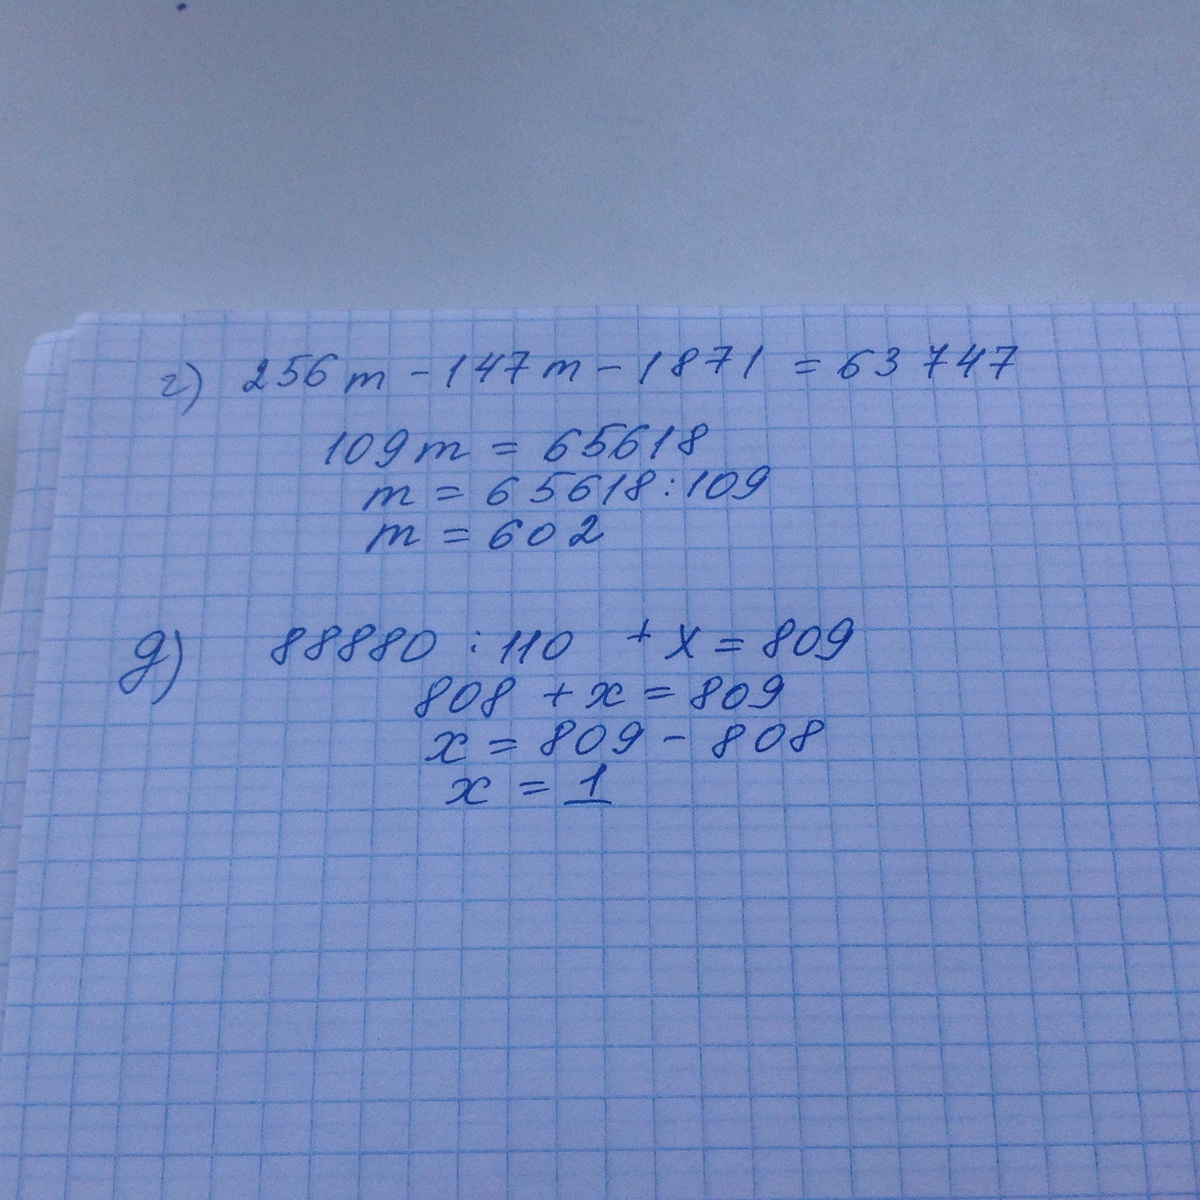 г) 256m - 147m - 1871 = 63747
109m = 65618
m = 65618 : 109
m = 602
д) 88880 : 110 + x = 809
808 + x = 809
x = 809 - 808
x = 1